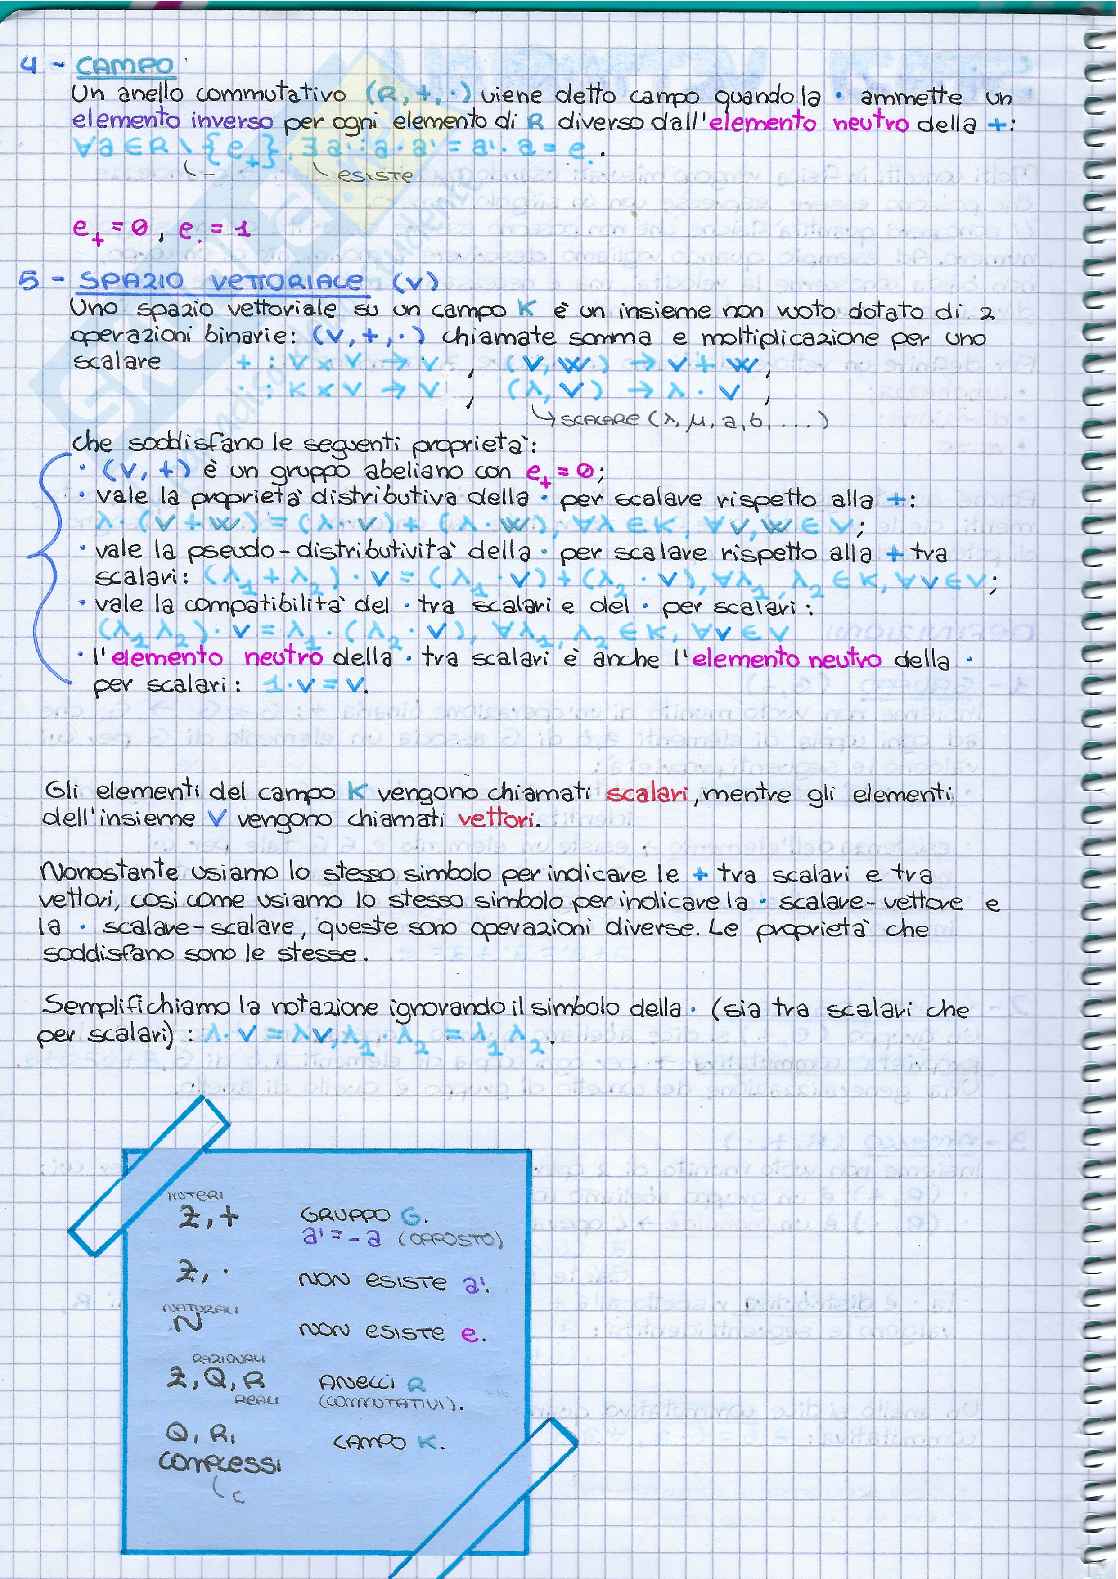 4 - CAMPO
Un anello commutativo (R,+,·) viene detto campo quando la · ammette un
elemento inverso per ogni elemento di R diverso dall'elemento neutro della +:
∀a∈R\{e₊}, ∃a':a·a'=a'·a=e.
esiste
e₊=0, e.=1
5 - SPAZIO VETTORIALE (V)
Uno spazio vettoriale su un campo K è un insieme non vuoto dotato di 2
operazioni binarie: (V,+,·) chiamate somma e moltiplicazione per uno
scalare + : V×V → V , (V,W) → V+W,
· : K×V → V , (λ,V) → λ·V,
↳ SCALARE (λ, μ, a, b, ...)
che soddisfano le seguenti proprietà:
· (V,+) è un gruppo abeliano con e₊=0;
· vale la proprietà distributiva della · per scalare rispetto alla +:
λ·(V+W)=(λ·V)+(λ·W), ∀λ∈K, ∀V,W∈V;
· vale la pseudo-distributività della · per scalare rispetto alla + tra
scalari: (λ₁+λ₂)·V=(λ₁·V)+(λ₂·V), ∀λ₁,λ₂∈K, ∀V∈V;
· vale la compatibilità del · tra scalari e del · per scalari:
(λ₁λ₂)·V=λ₁·(λ₂·V), ∀λ₁,λ₂∈K, ∀V∈V
· l'elemento neutro della · tra scalari è anche l'elemento neutro della ·
per scalari: 1·V=V.
Gli elementi del campo K vengono chiamati scalari, mentre gli elementi
dell'insieme V vengono chiamati vettori.
Nonostante usiamo lo stesso simbolo per indicare le + tra scalari e tra
vettori, così come usiamo lo stesso simbolo per indicare la · scalare-vettore e
la · scalare-scalare, queste sono operazioni diverse. Le proprietà che
soddisfano sono le stesse.
Semplifichiamo la notazione ignorando il simbolo della · (sia tra scalari che
per scalari): λ·V=λV, λ₁·λ₂=λ₁λ₂.
INTERI
Z,+ GRUPPO G.
a'=-a (OPPOSTO)
Z,· NON ESISTE a'.
NATURALI
N NON ESISTE e.
RAZIONALI
Z,Q,R ANELLI R
REALI (COMMUTATIVI).
Q, R, CAMPO K.
COMPLESSI
C